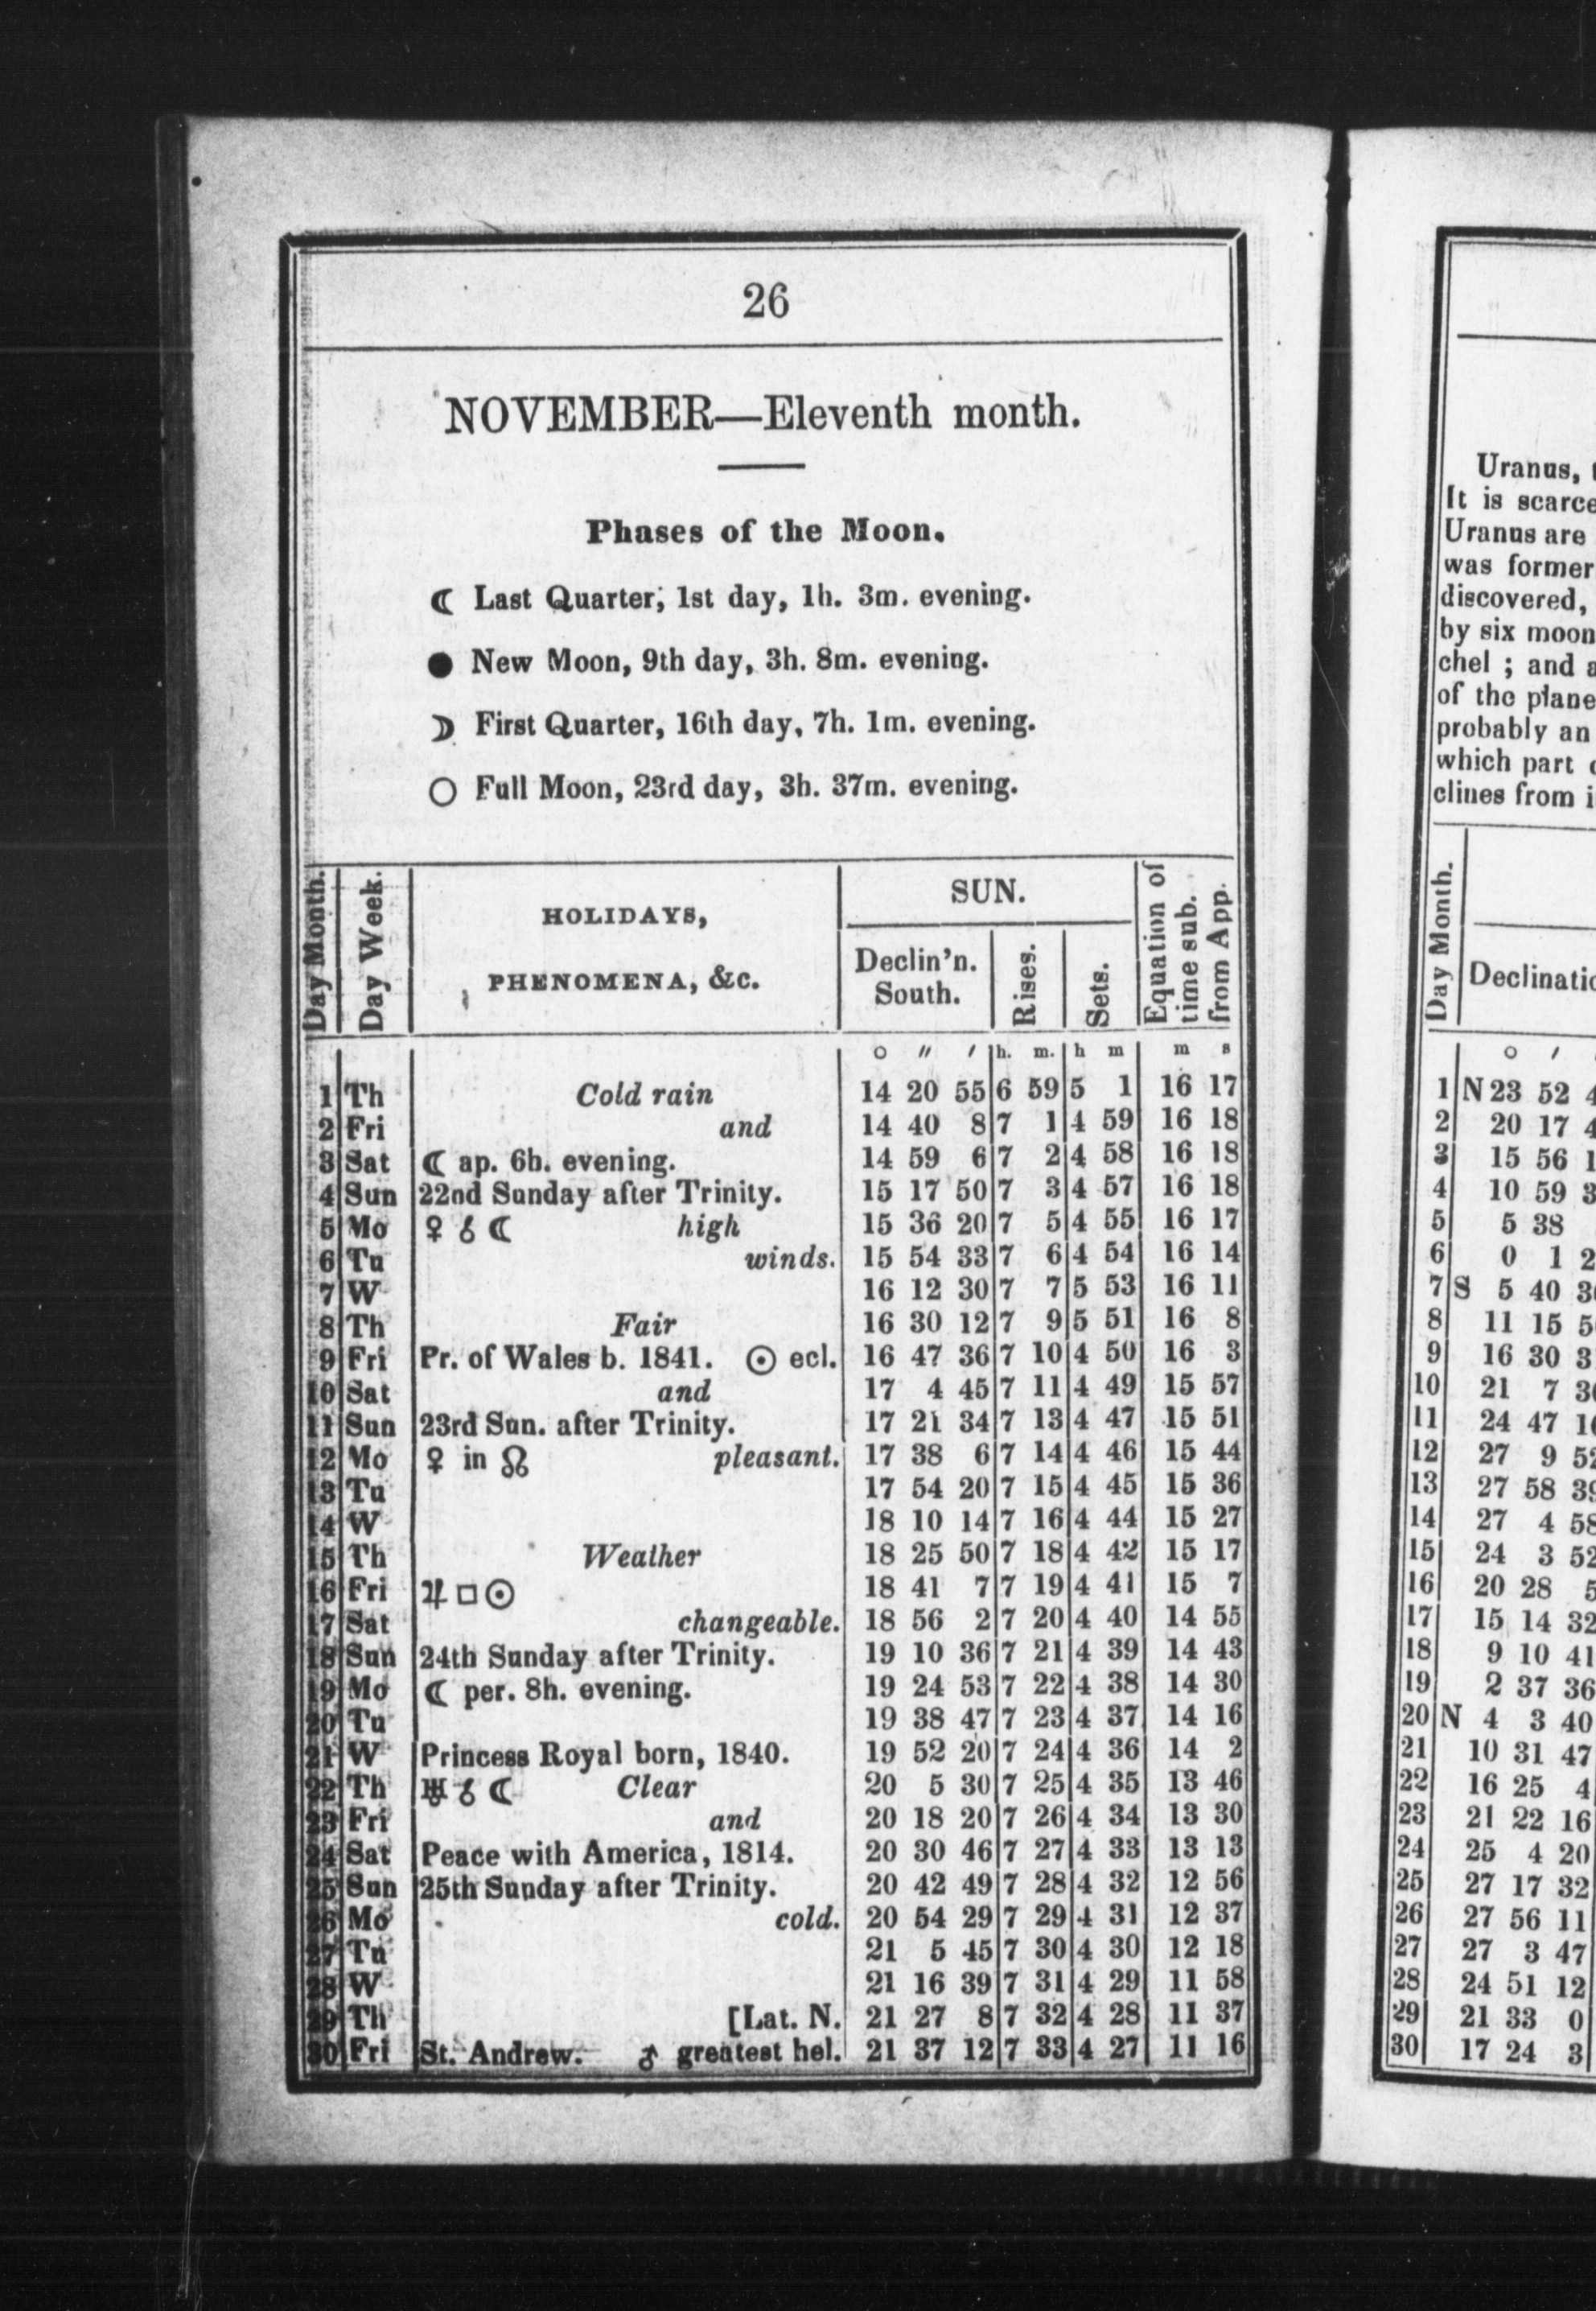 26
NOVEMBER—Eleventh month.
Phases of the Moon.
☾ Last Quarter, 1st day, 1h. 3m. evening.
● New Moon, 9th day, 3h. 8m. evening.
☽ First Quarter, 16th day, 7h. 1m. evening.
○ Full Moon, 23rd day, 3h. 37m. evening.
Day Month.
Day Week.
HOLIDAYS,
PHENOMENA, &c.
SUN.
Declin'n.
South.
Rises.
Sets.
Equation of
time sub.
from App.
○ ″ ′ h. m. h m m s
1 Th Cold rain 14 20 55 6 59 5 1 16 17
2 Fri and 14 40 8 7 1 4 59 16 18
3 Sat ☾ ap. 6h. evening. 14 59 6 7 2 4 58 16 18
4 Sun 22nd Sunday after Trinity. 15 17 50 7 3 4 57 16 18
5 Mo ♀ ☌ ☾ high 15 36 20 7 5 4 55 16 17
6 Tu winds. 15 54 33 7 6 4 54 16 14
7 W 16 12 30 7 7 5 53 16 11
8 Th Fair 16 30 12 7 9 5 51 16 8
9 Fri Pr. of Wales b. 1841. ☉ ecl. 16 47 36 7 10 4 50 16 3
10 Sat and 17 4 45 7 11 4 49 15 57
11 Sun 23rd Sun. after Trinity. 17 21 34 7 13 4 47 15 51
12 Mo ♀ in ☊ pleasant. 17 38 6 7 14 4 46 15 44
13 Tu 17 54 20 7 15 4 45 15 36
14 W 18 10 14 7 16 4 44 15 27
15 Th Weather 18 25 50 7 18 4 42 15 17
16 Fri ♃ □ ☉ 18 41 7 7 19 4 41 15 7
17 Sat changeable. 18 56 2 7 20 4 40 14 55
18 Sun 24th Sunday after Trinity. 19 10 36 7 21 4 39 14 43
19 Mo ☾ per. 8h. evening. 19 24 53 7 22 4 38 14 30
20 Tu 19 38 47 7 23 4 37 14 16
21 W Princess Royal born, 1840. 19 52 20 7 24 4 36 14 2
22 Th ♅ ☌ ☾ Clear 20 5 30 7 25 4 35 13 46
23 Fri and 20 18 20 7 26 4 34 13 30
24 Sat Peace with America, 1814. 20 30 46 7 27 4 33 13 13
25 Sun 25th Sunday after Trinity. 20 42 49 7 28 4 32 12 56
26 Mo cold. 20 54 29 7 29 4 31 12 37
27 Tu 21 5 45 7 30 4 30 12 18
28 W 21 16 39 7 31 4 29 11 58
29 Th [Lat. N. 21 27 8 7 32 4 28 11 37
30 Fri St. Andrew. ♂ greatest hel. 21 37 12 7 33 4 27 11 16
Uranus,
It is scarce
Uranus are
was former
discovered,
by six moon
chel ; and a
of the plane
probably an
which part
clines from i
Day Month.
Declinatio
○ ′
1 N 23 52 4
2 20 17 4
3 15 56 1
4 10 59 3
5 5 38
6 0 1 2
7 S 5 40 3
8 11 15 5
9 16 30 3
10 21 7 3
11 24 47 1
12 27 9 52
13 27 58 39
14 27 4 58
15 24 3 52
16 20 28 5
17 15 14 32
18 9 10 41
19 2 37 36
20 N 4 3 40
21 10 31 47
22 16 25 4
23 21 22 16
24 25 4 20
25 27 17 32
26 27 56 11
27 27 3 47
28 24 51 12
29 21 33 0
30 17 24 3